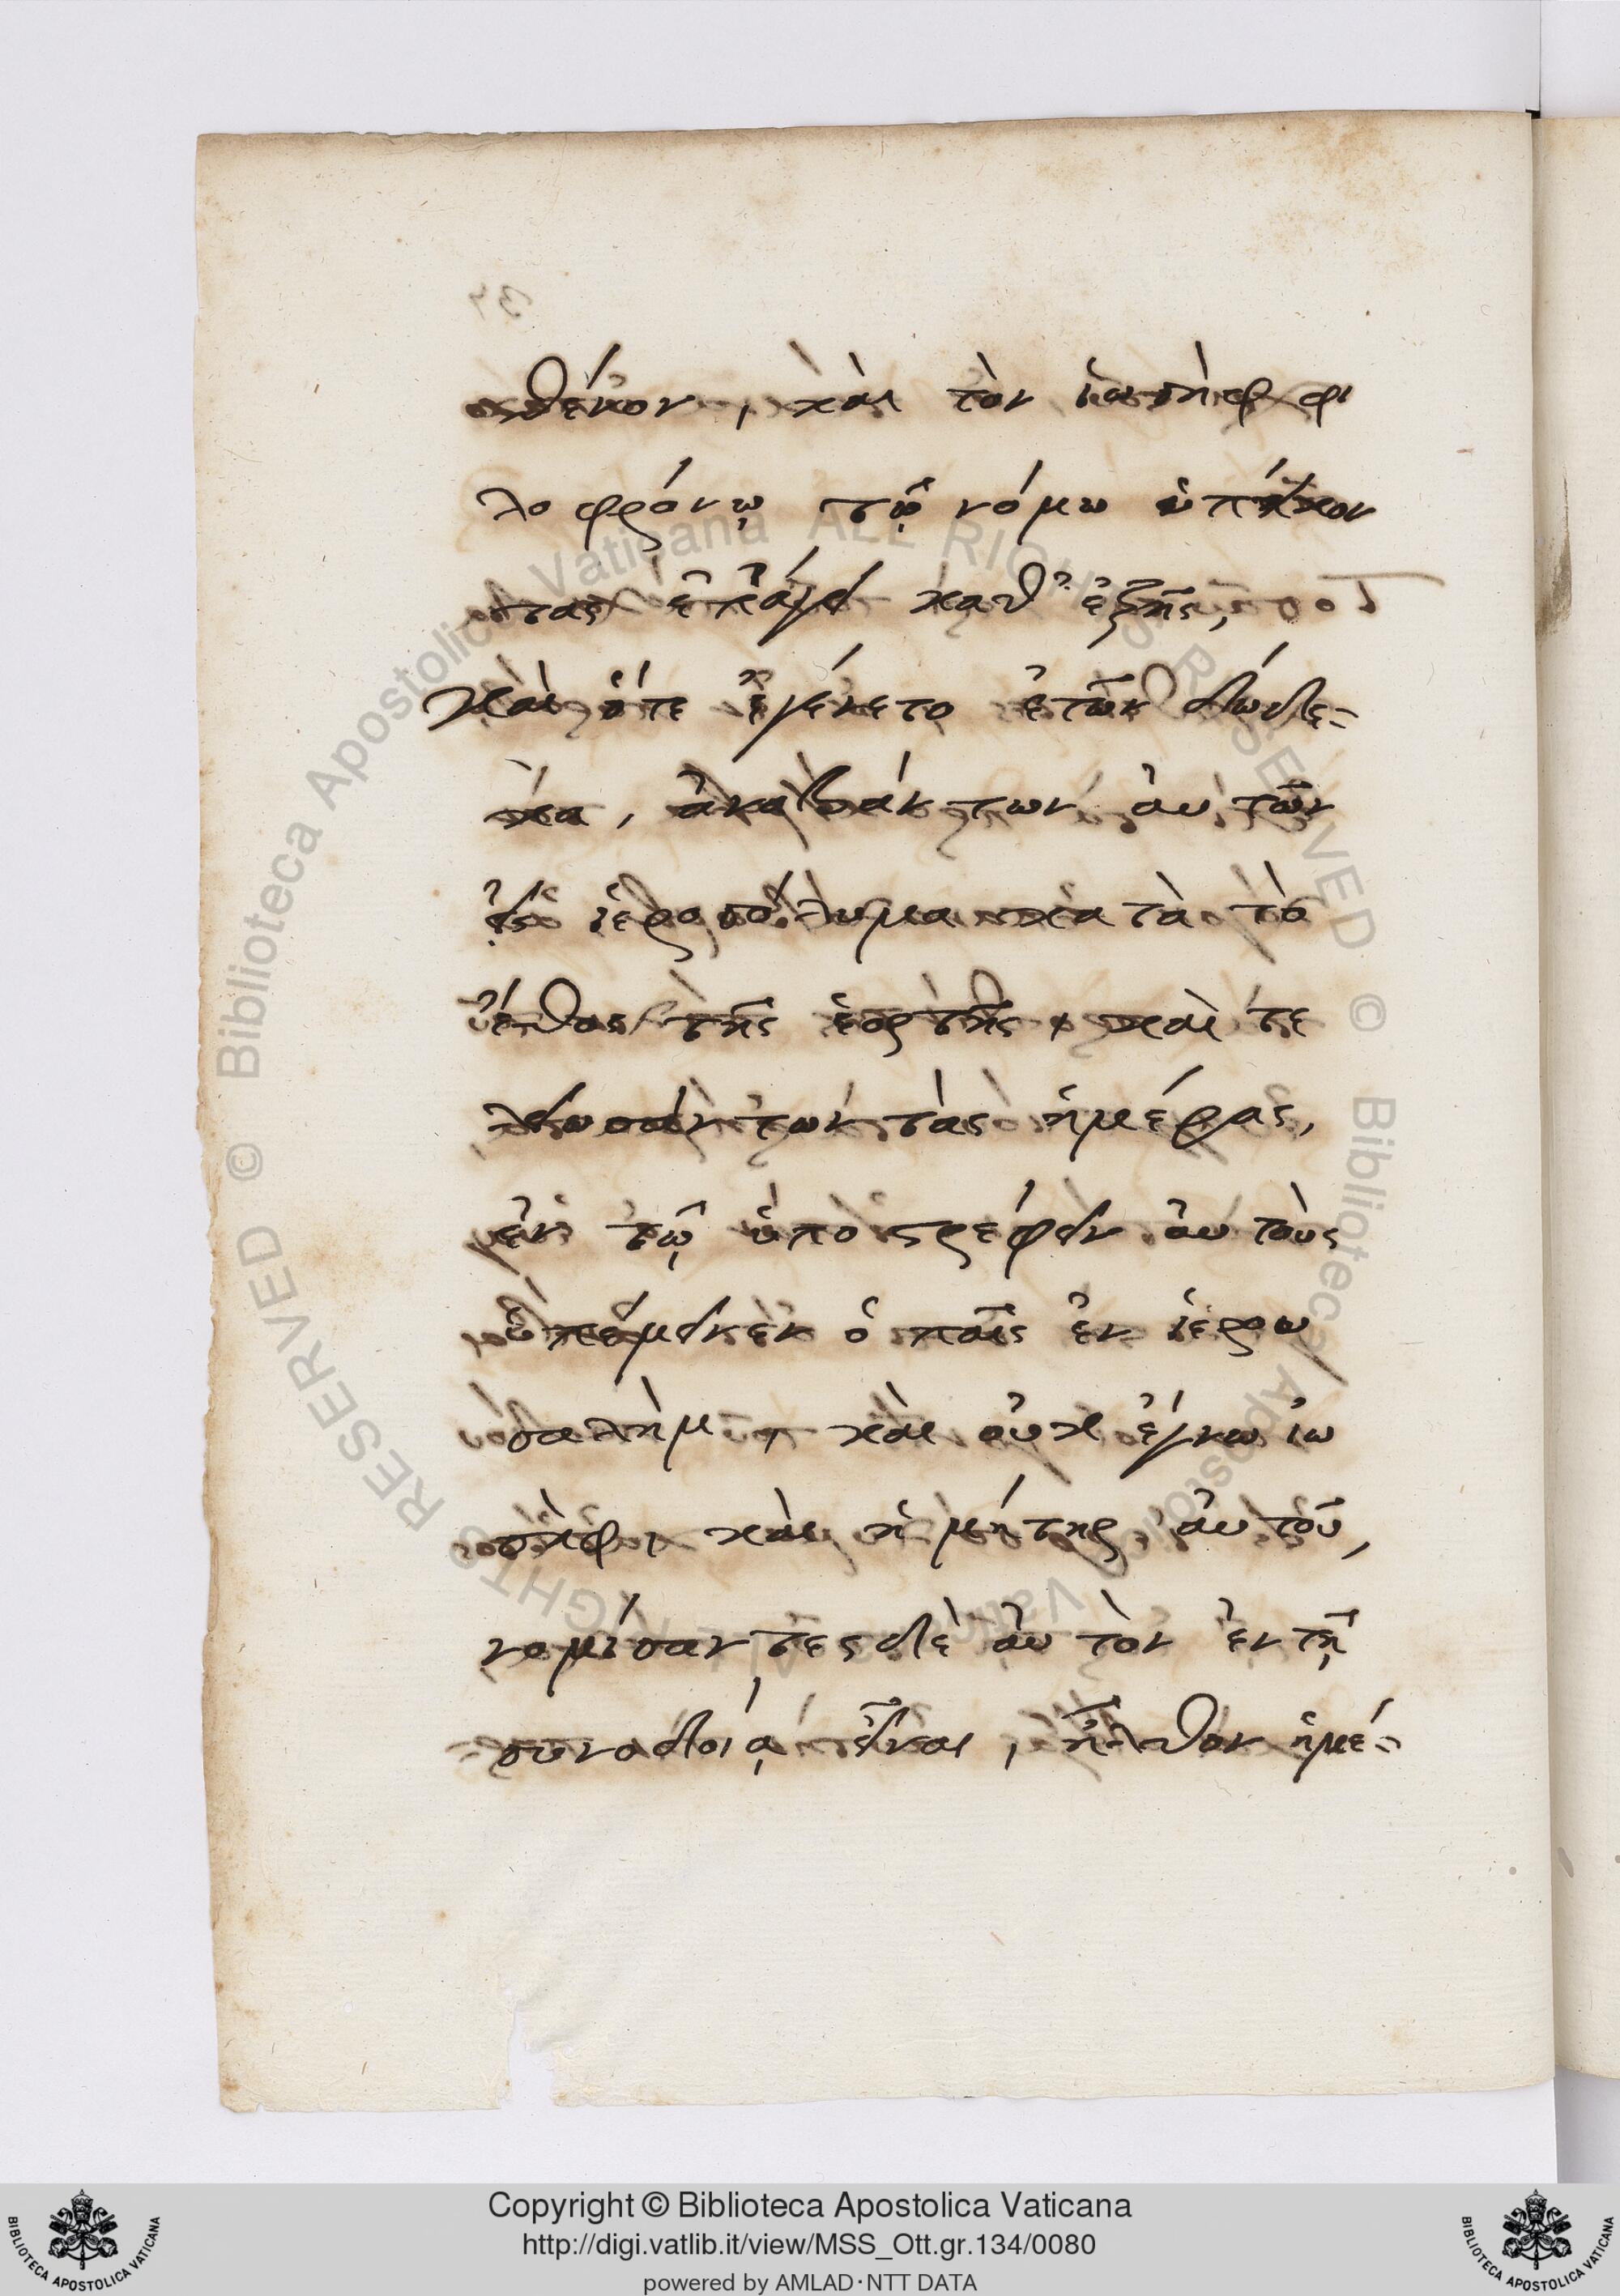 σθένον, καὶ τὸν ἰωσὴφ φι
λοφρόνῳ τῷ νόμω ὑπήκον
τας ἐπάγει καθ' ἑξῆς,
Καὶ ὅτε ἐγένετο ἐτῶν δώδε-
κα, ἀναβάντων αὐτῶν
εἰς ἱεροσόλυμα κατὰ τὸ
ἔθος τῆς ἑορτῆς, καὶ τε
λειωσάντων τὰς ἡμέρας,
ἐν τῷ ὑποστρέφειν αὐτοὺς
ὑπέμεινεν ὁ παῖς ἐν ἱερου
σαλὴμ, καὶ οὐκ ἔγνω ἰω
σὴφ, καὶ ἡ μήτηρ αὐτοῦ,
νομίσαντες δὲ αὐτὸν ἐν τῇ
συνοδίᾳ εἶναι, ἦλθον ἡμέ-
Copyright © Biblioteca Apostolica Vaticana
http://digi.vatlib.it/view/MSS_Ott.gr.134/0080
powered by AMLAD·NTT DATA
BIBLIOTECA APOSTOLICA VATICANA
BIBLIOTECA APOSTOLICA VATICANA
© Biblioteca Apostolica Vaticana ALL RIGHTS RESERVED
© Biblioteca Apostolica Vaticana ALL RIGHTS RESERVED